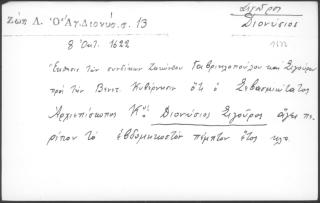 Ζώη Λ. Ὁ Ἅγ. Διονύσ. σ. 13
Σιγοῦρος
Διονύσιος
8 Ὀκτ. 1622
1622
Ἔκθεσις τῶν συνδίκων Ζακύνθου Γαβριηλοπούλου καὶ Σιγούρου
πρὸς τὴν Βενετ. Κυβέρνησιν ὅτι ὁ Σεβασμιώτατος
Ἀρχιεπίσκοπος Κος Διονύσιος Σιγοῦρος ἄγει πε
ρίπου τὸ ἑβδομηκοστὸν πέμπτον ἔτος κλπ.